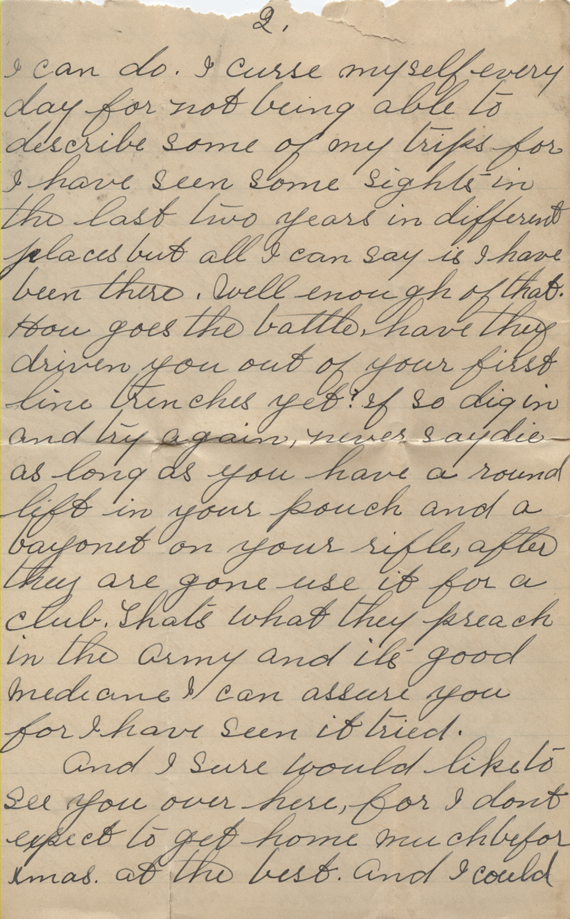 2.
I can do. I curse myself every
day for not being able to
describe some of my trips for
I have seen some sights in
the last two years in different
places but all I can say is I have
been there. Well enough of that.
How goes the battle, have they
driven you out of your first
line trenches yet? if so dig in
and try again, never say die
as long as you have a round
lift in your pouch and a
bayonet on your rifle, after
they are gone use it for a
club. Thats what they preach
in the army and its good
medecine I can assure you
for I have seen it tried.
And I sure would like to
see you over here, for I dont
expect to get home much befor
xmas. at the best. And I could